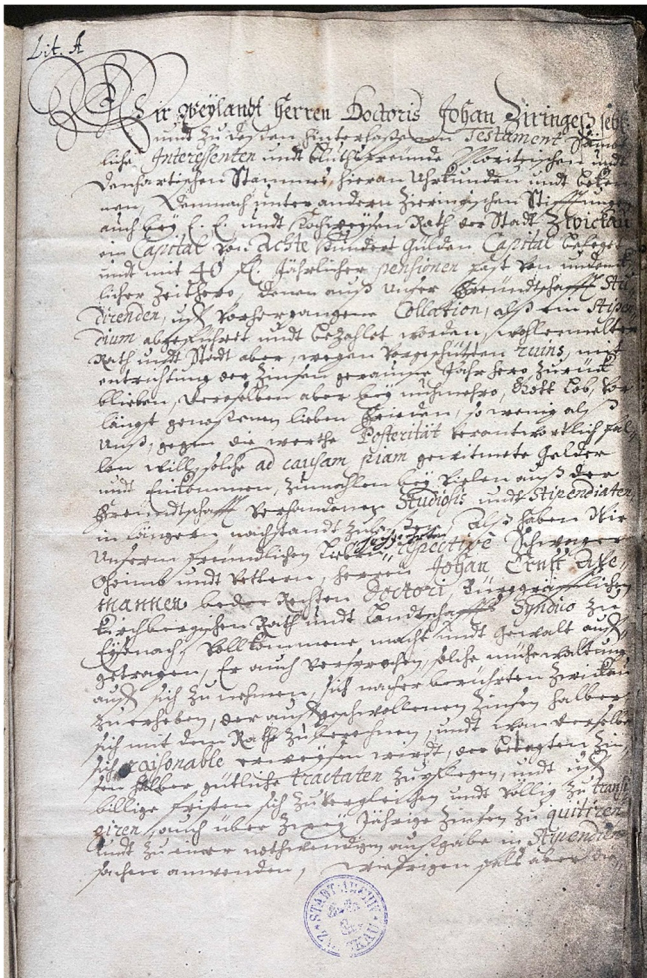 Lit. A
Wir Weylandt Herren Doctoris Johan Ziringers sehl:
undt zu deßen hinterlaßenen Testament
liche Interessenten undt Blutsfreunde undt
Stammes, hieran Uhrkunden undt beken
nen, Demnach unter andern Stifftungen
auch bey E. E. undt Hochweysen Rath der Stadt Zwickau
ein Capital von Achte Hundert Gülden Capital beleget
undt mit 40 fl. Jährlicher pensionen fast von undenck
licher Zeithero, denen auß unser Freundtschafft Stu
direnden, uf vorhergangene Collation, alß ein Stipen
dium abgeführet undt bezahlet worden, wohlermelter
Rath undt Stadt aber, wegen vorgeschützten ruins, mit
entrichtung der Zinsen geraume Jahr hero zurück
blieben, derselben aber bey nuhmehro, Gott Lob, vor
längst genoßenen lieben Frieden, so wenig alß
Unß, gegen die werthe Posterität verantwortlich fal
len will, solche ad causam piam gewitmete gelder
undt Einkommen, zumahlen bey vielen auß der
Freundtschafft verhandenen Studiosis undt Stipendiaten,
in längern nachstandt Alß haben Wir
Unserm freundlichen lieben respective Schwager
Ohmb undt Vettern, Herren Johan Ernst
mannen beder Rechten Doctori, Burggräfflichen
Kirchbergischen Rath undt Landtschafft Syndico zu
Eysenach, vollkommene macht undt gewalt auff
getragen, Er auch versprochen, solche mühewaltung
auff sich zu nehmen, sich nacher berührten Zwickau
zu erheben, der auffgeschwollenen Zinsen halber
sich mit dem Rathe zu berechnen, undt wan derselbe
sich raisonable erweysen wirdt, der betagten Zin
sen halber, gütliche tractaten zu pflegen, undt uf
billige fristen sich zu vergleichen undt völlig zu transi
giren, auch über Jährige Zinsen zu quittiren
undt zu einer nothwendigen außgabe in
sachen anwenden, wiedrigen falß aber die
STADT-ARCHIV ZWICKAU